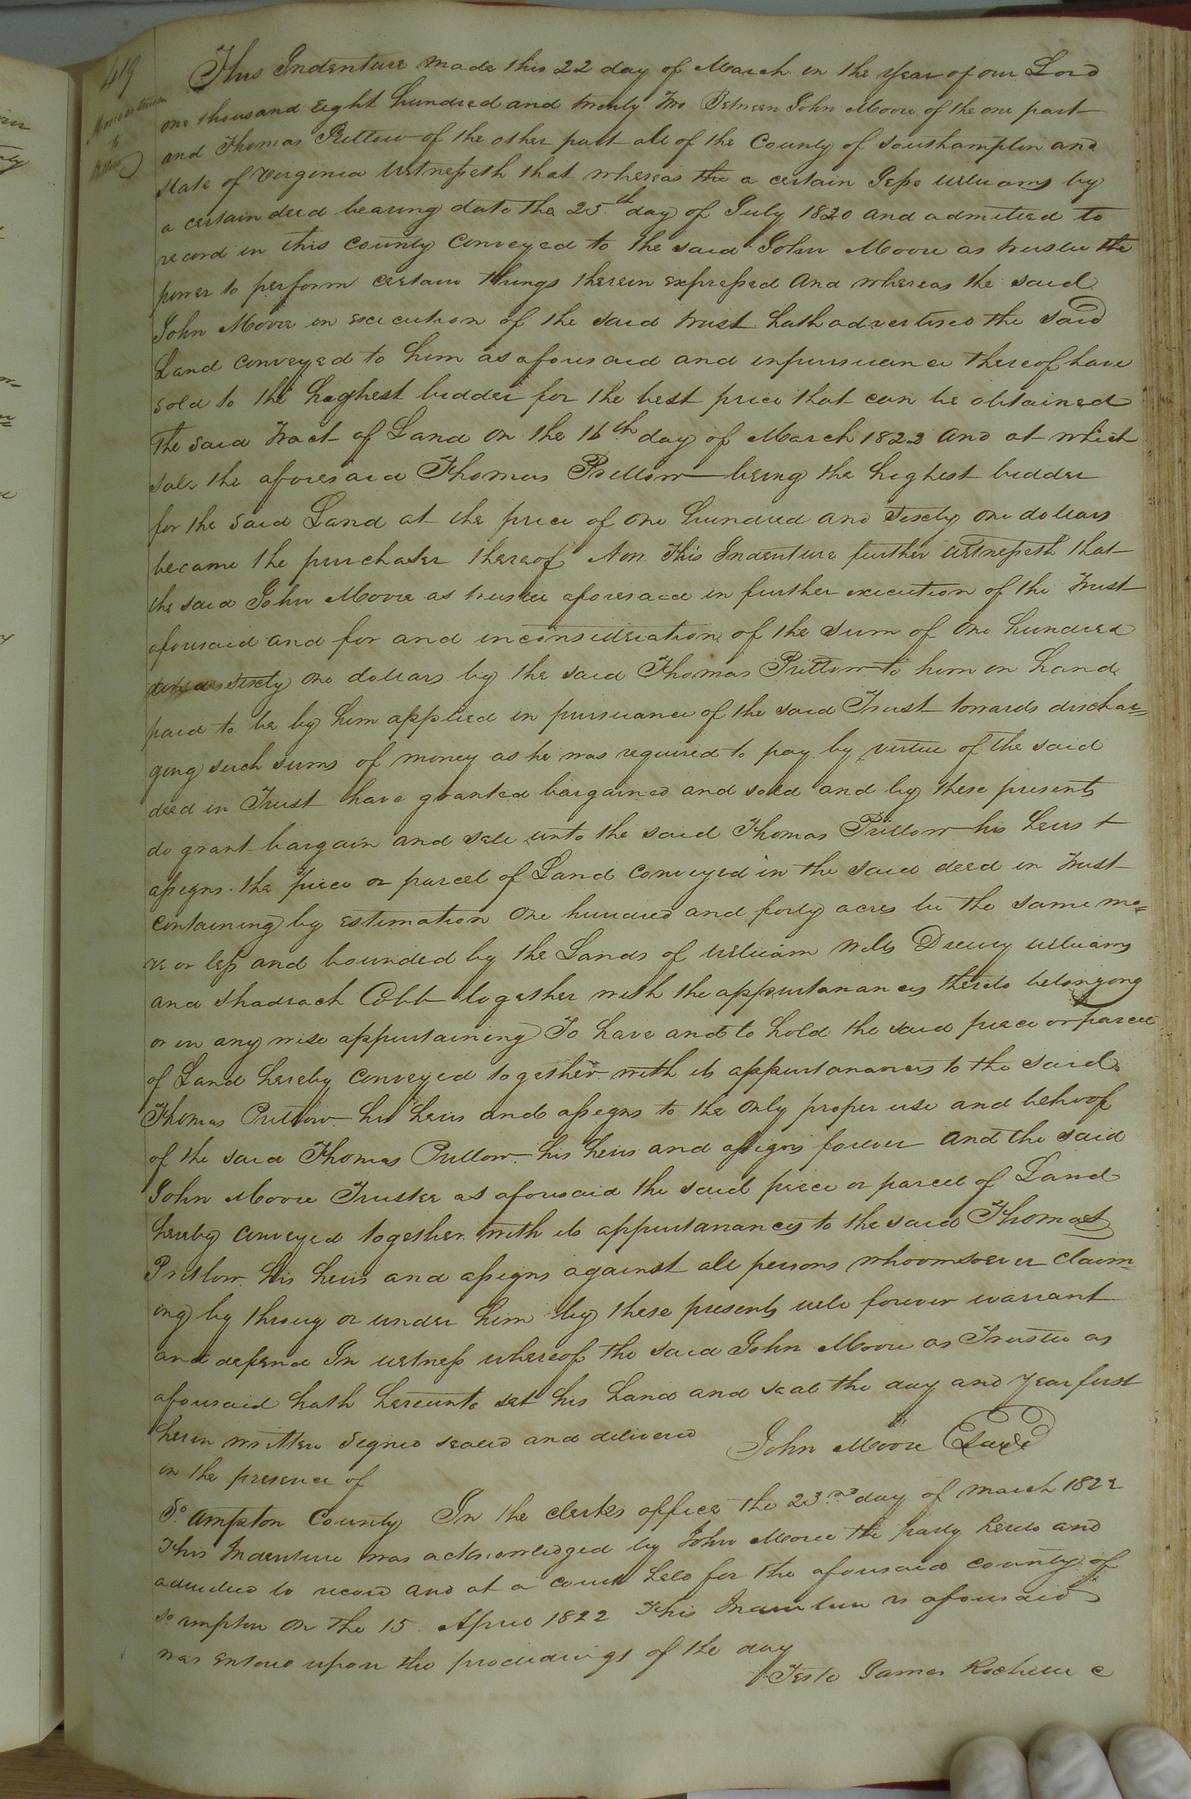 419
to
This Indenture made this 22 day of March in the year of our Lord
one thousand eight hundred and twenty Two Between John Moore of the one part
and Thomas Pretlow of the other part all of the County of Southampton and
State of Virginia Witnesseth that whereas the a certain Jesse Williams by
a certain deed bearing date the 25th day of July 1820 and admitted to
record in this county conveyed to the said John Moore as trustee the
power to perform certain things therein expressed and whereas the said
John Moore in execution of the said trust hath advertised the said
Land conveyed to him as aforesaid and inpursuance thereof have
sold to the heghest bidder for the best price that can be obtained
The said Tract of Land on the 16th day of March 1822 and at which
sale the aforesaid Thomas Pretlow being the highest bidder
for the said Land at the price of one hundred and sixty one dollars
became the purchaser thereof Now This Indenture further witnesseth that
the said John Moore as trustee aforesaid in further execution of the Trust
aforesaid and for and inconsideration of the sum of one hundred
sixty one dollars by the said Thomas Pretlow to him in hand
paid to be by him applied in pursuance of the said Trust towards dischar=
ging such sums of money as he was required to pay by virtue of the said
deed in Trust have granted bargained and sold and by these presents
do grant bargain and sell unto the said Thomas Pretlow his heirs +
assigns the piece or parcel of Land conveyed in the said deed in Trust
containing by estimation one hundred and forty acres be the same mo=
re or less and bounded by the Lands of William Drewry Williams
and Shadrach Cobb together with the appurtanances thereto belonging
or in any wise appurtaining To have and to hold the said piece or parcel
of Land hereby conveyed together with its appurtanances to the said
Thomas Pretlow his heirs and assigns to the only proper use and behoof
of the said Thomas Pretlow his heirs and assigns forever and the said
John Moore Trustee as aforesaid the said piece or parcel of Land
hereby conveyed together with its appurtanances to the said Thomas
Pretlow his heirs and assigns against all persons whoomsoever claim=
ing by throug or under him by these presents will forever warrant
and defend In witness whereof the said John Moore as Trustee as
aforesaid hath hereunto set his hand and seal the day and year first
herein written Signed sealed and delivered John Moore Seal
in the presence of
So ampton County In the clerks office the 23rd day of march 1822
This Indenture was acknowledged by John Moore the party hereto and
admitted to record and at a court held for the aforesaid county of
So ampton on the 15 April 1822 This Indenture as aforesaid
was entered upon the proceedings of the day
Teste James Rochelle C